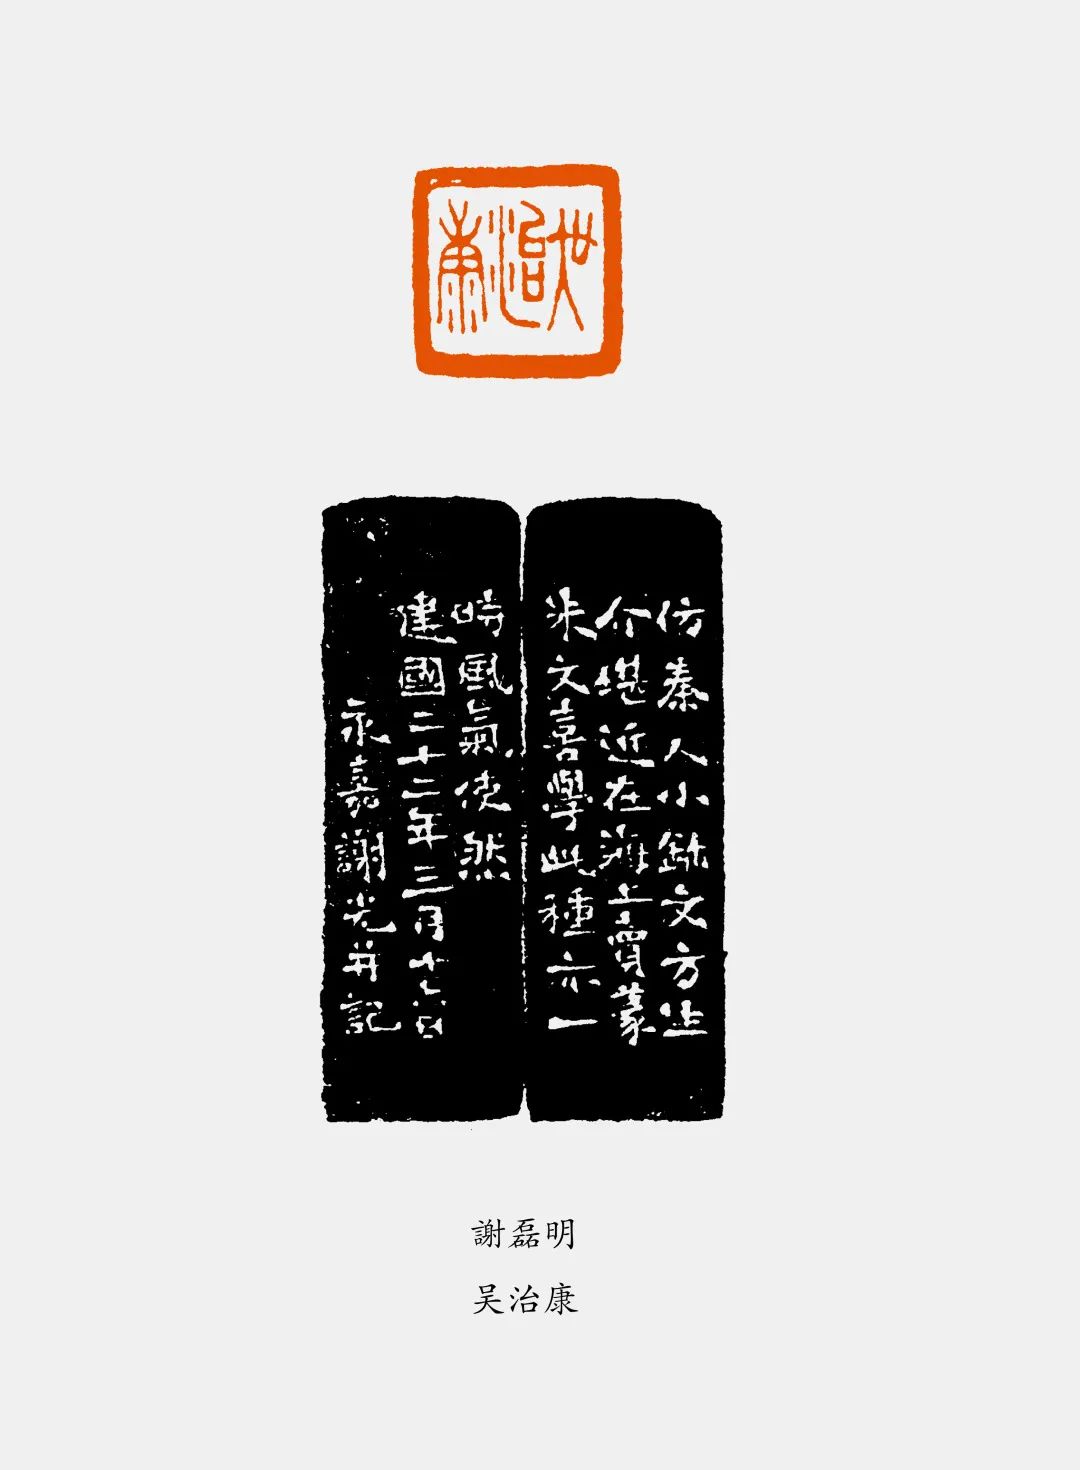 吴治康
仿秦人小鉨文方㞷
介堪近在海上賣篆
朱文喜學此種亦一
時風氣使然
建國二十二年三月十六日
永嘉謝光并記
謝磊明
吴治康